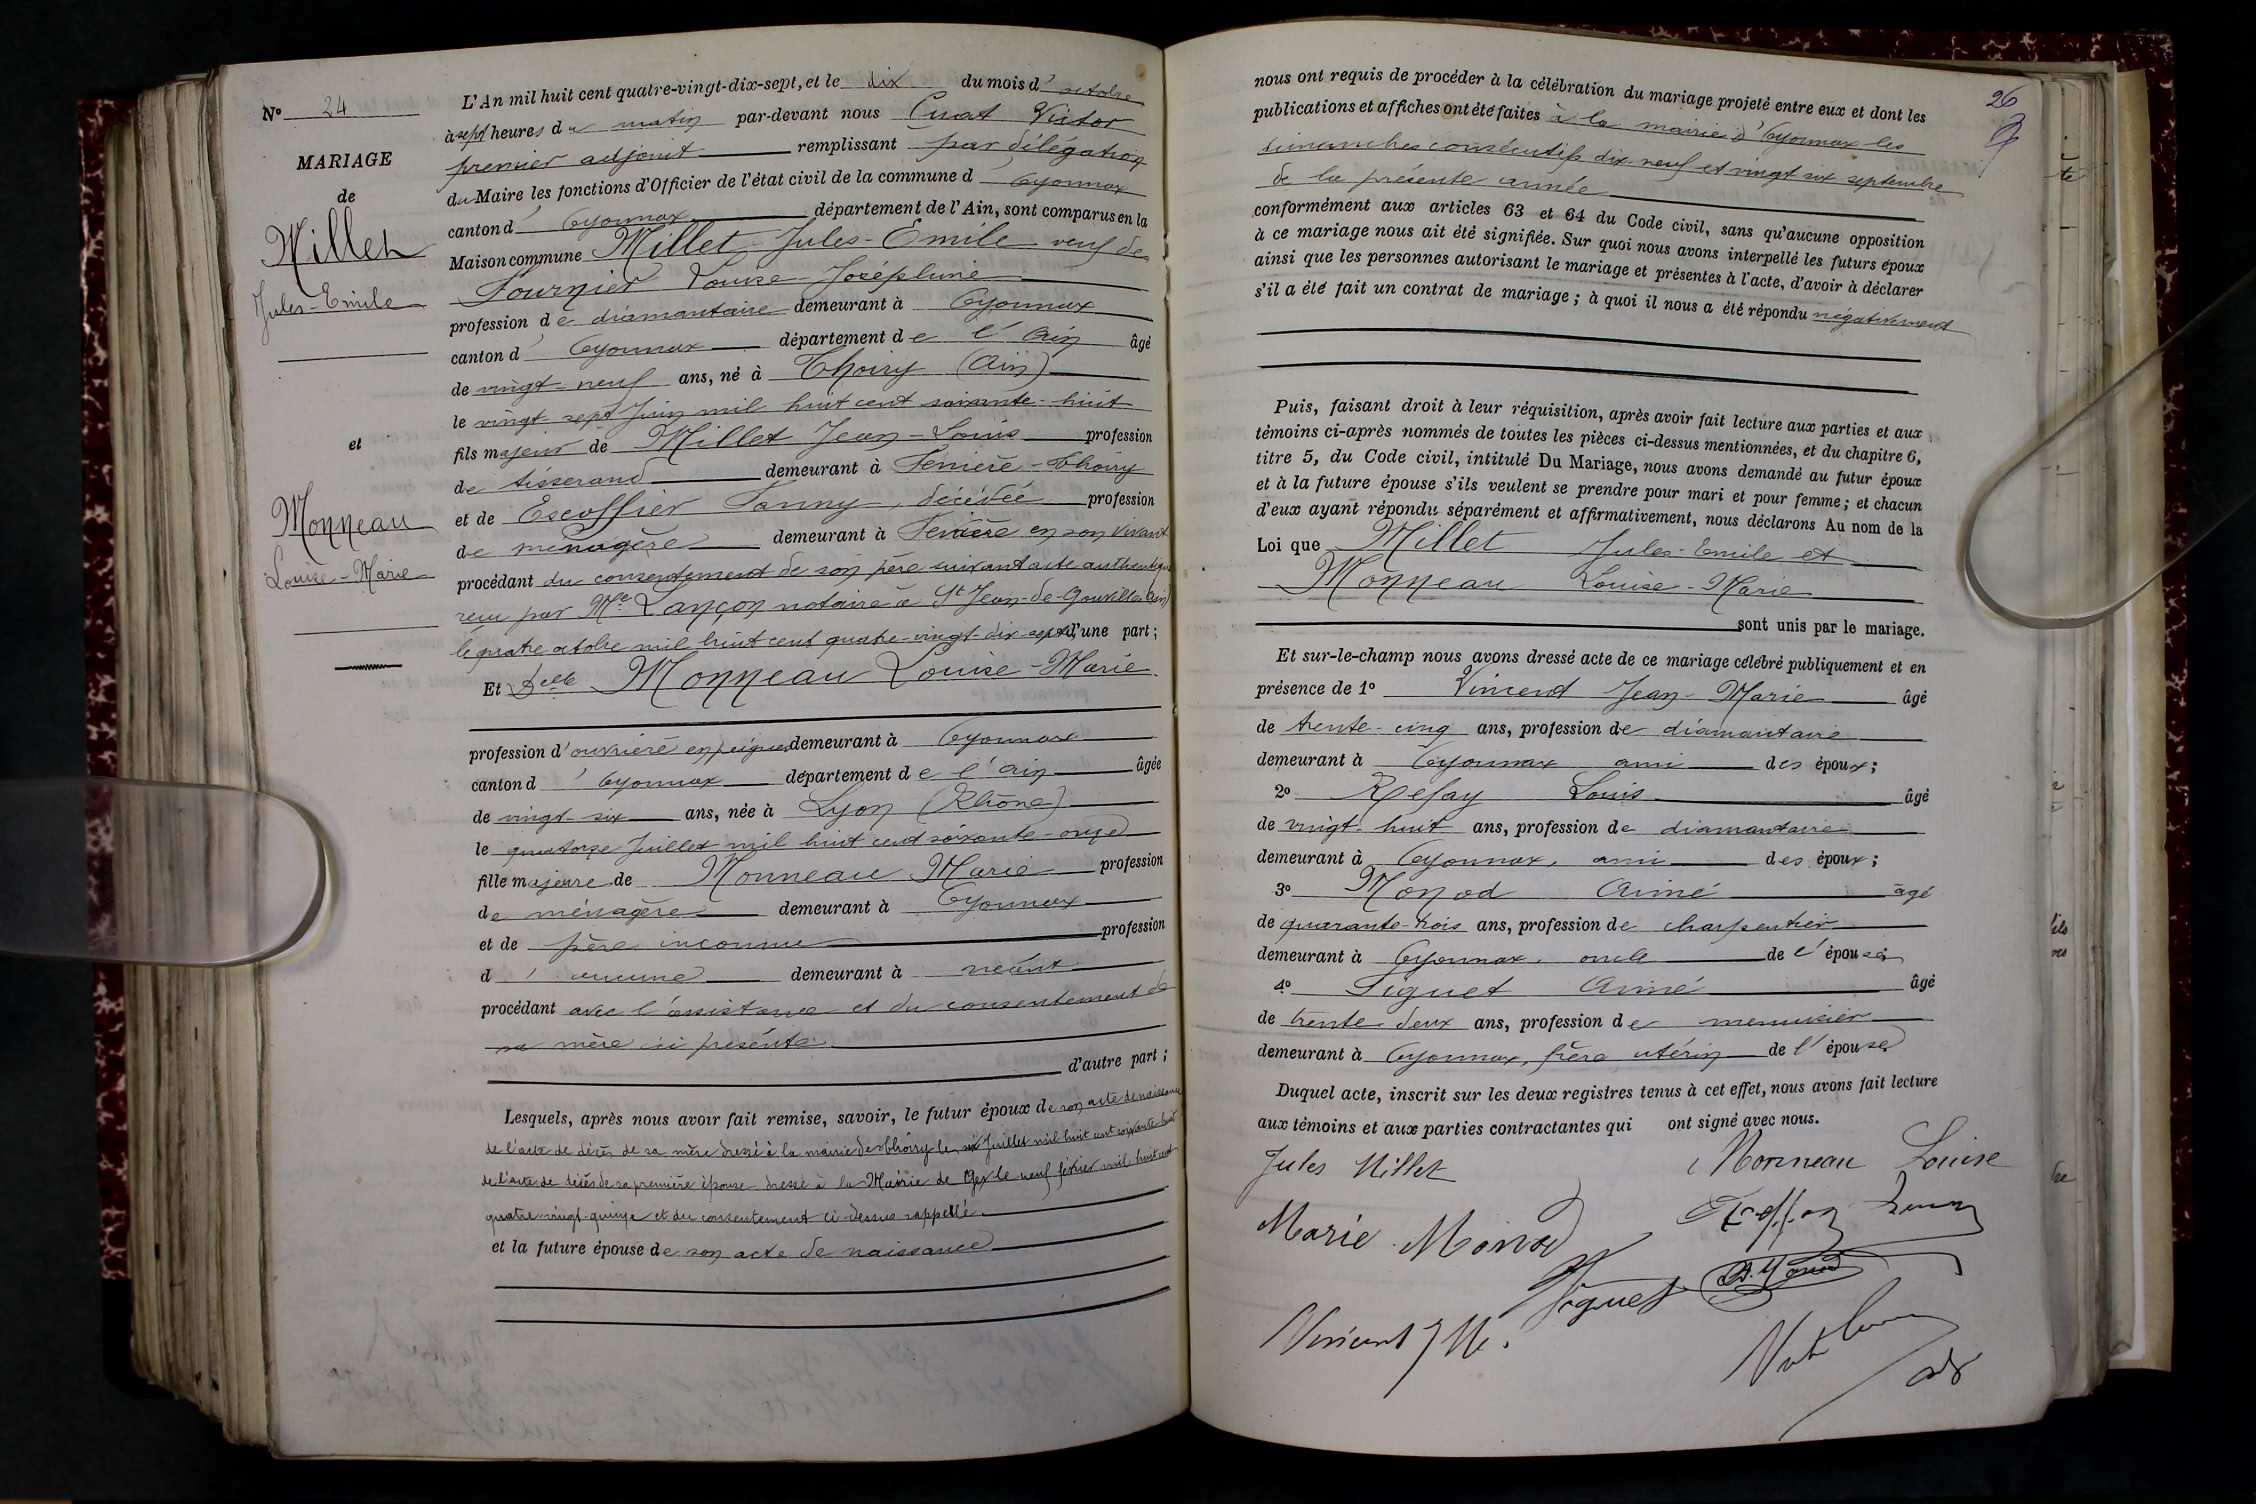 N° 24
MARIAGE
de
Millet
Jules-Emile
et
Monneau
Louise-Marie
L'An mil huit cent quatre-vingt-dix-sept, et le dix du mois d'octobre
à sept heures du matin par-devant nous Cuat Victor
premier adjoint remplissant par délégation
du Maire les fonctions d'Officier de l'état civil de la commune d'Oyonnax
canton d'Oyonnax département de l'Ain, sont comparus en la
Maison commune Millet Jules-Emile veuf de
Fournier Louise-Joséphine
profession de diamantaire demeurant à Oyonnax
canton d'Oyonnax département de l'Ain âgé
de vingt-neuf ans, né à Thoiry (Ain)
le vingt sept Juin mil huit cent soixante-huit
fils majeur de Millet Jean-Louis profession
de tisserand demeurant à Fenière-Thoiry
et de Escoffier Fanny, décédée profession
de ménagère demeurant à Fenière en son vivant
procédant du consentement de son père suivant acte authentique
reçu par Me Lançon notaire à St Jean-de-Gonville (Ain)
le quatre octobre mil huit cent quatre-vingt-dix-sept d'une part;
Et Delle Monneau Louise-Marie
profession d'ouvrière en peignes demeurant à Oyonnax
canton d'Oyonnax département de l'Ain âgée
de vingt-six ans, née à Lyon (Rhône)
le quatorze Juillet mil huit cent soixante-onze
fille majeure de Monneau Marie profession
de ménagère demeurant à Oyonnax
et de père inconnu profession
d'aucune demeurant à néant
procédant avec l'assistance et du consentement de
sa mère ici présente
d'autre part;
Lesquels, après nous avoir fait remise, savoir, le futur époux de son acte de naissance
de l'acte de décès de sa mère dressé à la mairie de Thoiry le six Juillet mil huit cent soixante huit
de l'acte de décès de sa première épouse dressé à la Mairie de Gex le neuf février mil huit cent
quatre-vingt-quinze et du consentement ci-dessus rappellé
et la future épouse de son acte de naissance
26
nous ont requis de procéder à la célébration du mariage projeté entre eux et dont les
publications et affiches ont été faites à la mairie d'Oyonnax les
dimanches consécutifs dix-neuf et vingt six septembre
de la présente année
conformément aux articles 63 et 64 du Code civil, sans qu'aucune opposition
à ce mariage nous ait été signifiée. Sur quoi nous avons interpellé les futurs époux
ainsi que les personnes autorisant le mariage et présentes à l'acte, d'avoir à déclarer
s'il a été fait un contrat de mariage; à quoi il nous a été répondu négativement
Puis, faisant droit à leur réquisition, après avoir fait lecture aux parties et aux
témoins ci-après nommés de toutes les pièces ci-dessus mentionnées, et du chapitre 6,
titre 5, du Code civil, intitulé Du Mariage, nous avons demandé au futur époux
et à la future épouse s'ils veulent se prendre pour mari et pour femme; et chacun
d'eux ayant répondu séparément et affirmativement, nous déclarons Au nom de la
Loi que Millet Jules-Emile et
Monneau Louise-Marie
sont unis par le mariage.
Et sur-le-champ nous avons dressé acte de ce mariage célébré publiquement et en
présence de 1° Vincent Jean-Marie âgé
de trente-cinq ans, profession de diamantaire
demeurant à Oyonnax ami des époux;
2° Refay Louis âgé
de vingt-huit ans, profession de diamantaire
demeurant à Oyonnax, ami des époux;
3° Monod Aimé âgé
de quarante-trois ans, profession de charpentier
demeurant à Oyonnax, oncle de l'épouse;
4° Siguet Aimé âgé
de trente-deux ans, profession de menuisier
demeurant à Oyonnax, frère utérin de l'épouse
Duquel acte, inscrit sur les deux registres tenus à cet effet, nous avons fait lecture
aux témoins et aux parties contractantes qui ont signé avec nous.
Jules Millet Monneau Louise
Marie Monod
Siguet A. Monod
Vincent J M.